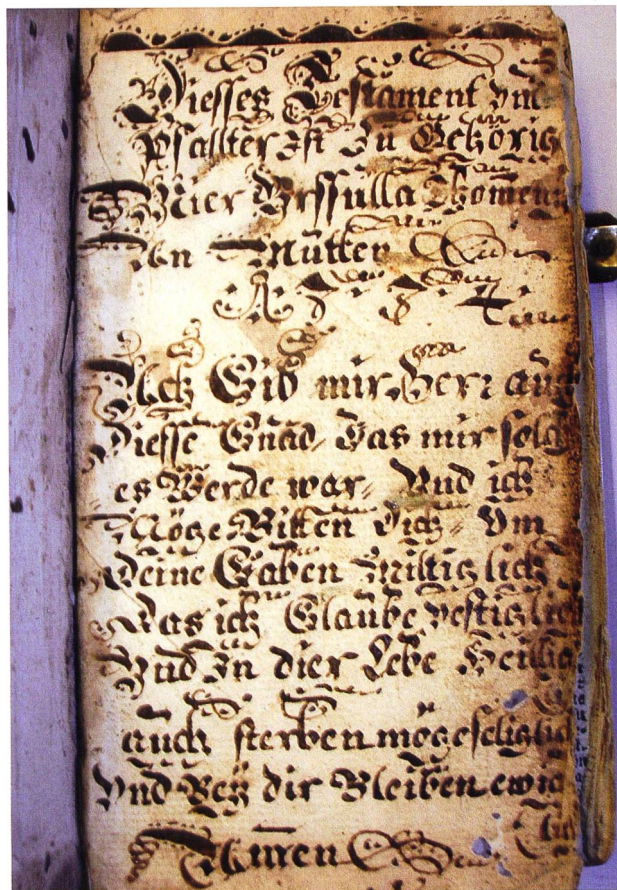 Diesses Testament vnd
Psallter Ist Zu Gehörig
Mier Vrssulla Thomeng
Von Mutten
A 7 7 4
Ach Gib mir Herr auch
Diesse Gnad, Das mir solch
es Werde war, Vnd ich
Möge Bitten Dich, Vm
Deine Gaben Inttiglich
Das ich Glaube vestiglich
Vnd In dier Lebe Heilig
auch sterben möge seliglich
Vnd Bey dir Bleiben ewig
lich
Amen